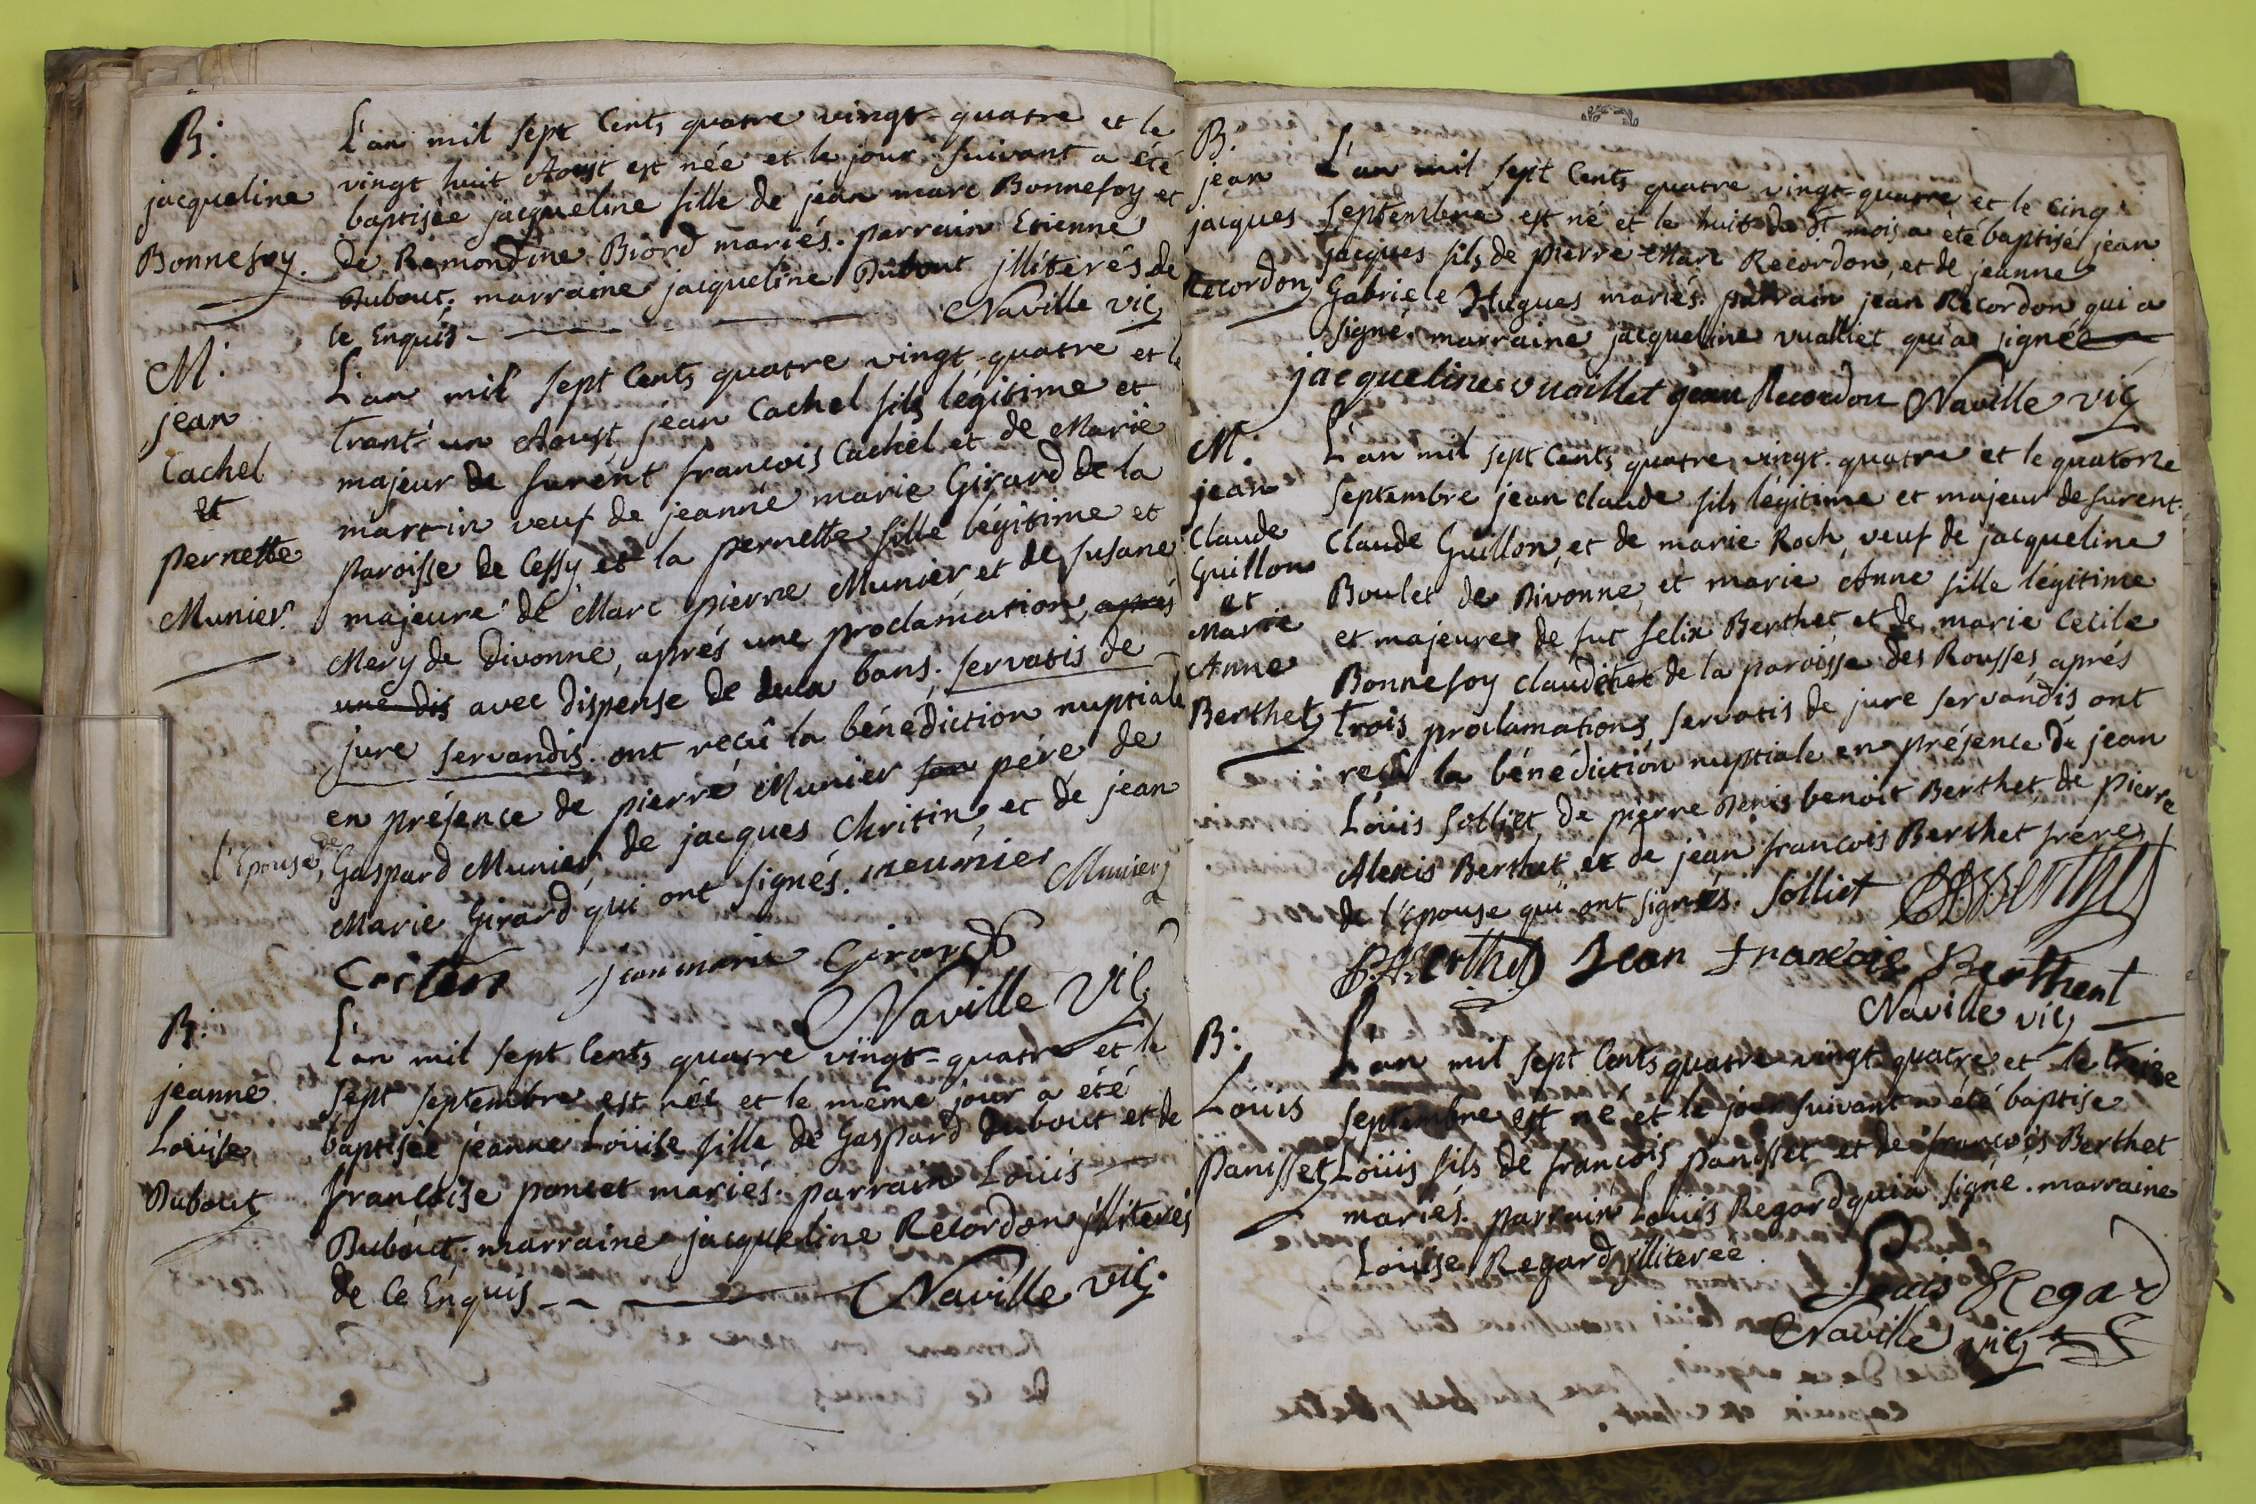 B:
jacqueline
Bonnefoy.
L'an mil sept Cents quatre vingt-quatre et le
vingt huit Aoust est née et le jour suivant a été
baptisée jacqueline fille de jean marc Bonnefoy et
de Remondine Biord mariés. parrain Etienne
Dubout. marraine jacqueline Dubout jlliterés de
ce Enquis
Naville vic
M.
jean
Cachel
et
pernette
Munier.
L'an mil sept Cents quatre vingt-quatre et le
trant'un Aoust jean Cachel fils légitime et
majeur de furent françois Cachel et de Marie
martin veuf de jeanne marie Girard de la
paroisse de Cessy et la pernette fille légitime et
majeure de Marc pierre Munier et de susane
Mery de Divonne, aprés une proclamation, aprés
une dis avec dispense de deux bans. servatis de
jure servandis. ont reçû la bénédiction nuptiale
en présence de pierre Munier son pére de
l'Epouse, de Gaspard Munier, de jacques Chritin, et de jean
Marie Girard qui ont signés. meunier Munier
Critin jean marie Girard
Naville vic
B:
jeanne
Loüise
Dubout
L'an mil sept Cents quatre vingt-quatre et le
sept septembre est née et le même jour a été
baptisée jeanne Loüise fille de Gaspard Dubout et de
françoise poncet mariés. parrain Loüis
Dubout. marraine jacqueline Recordon jlliterés
de ce Enquis
Naville vic.
B.
jean
jacques
Recordon
L'an mil sept Cents quatre vingt-quatre et le cinq
septembre est né et le huit du dt mois a été baptisé jean
jacques fils de pierre Marc Recordon, et de jeanne
Gabriele Hugues mariés. parrain jean Recordon qui a
signé. marraine jacqueline vualliet qui a signée
jacqueline vuaillet jean Recordon Naville vic
M.
jean
Claude
Guillon
et
Marie
Anne
Berthet
L'an mil sept Cents quatre vingt-quatre et le quatorze
septembre jean claude fils légitime et majeur de furent
Claude Guillon, et de marie Roch, veuf de jacqueline
Boulet de Divonne, et marie Anne fille légitime
et majeure de fut felix Berthet et de marie Cecile
Bonnefoy claudet de la paroisse des Rousses aprés
trois proclamations, servatis de jure servandis ont
reçû la bénédiction nuptiale en présence de jean
Loüis solliet, de pierre Denis benoit Berthet, de pierre
Alexis Berthet, et de jean françois Berthet frére
de l'épouse qui ont signés. solliet Berthet
P.A. Berthet Jean François Berthent
Naville vic
B:
Loüis
panisset
L'an mil sept Cents quatre vingt quatre et le treize
septembre est né et le jour suivant a été baptise
Loüis fils de françois panisset et de françois Berthet
mariés. parrain Louis Regard qui a signé. marraine
Loüise Regard jlliterée.
Louis Regard
Naville vic